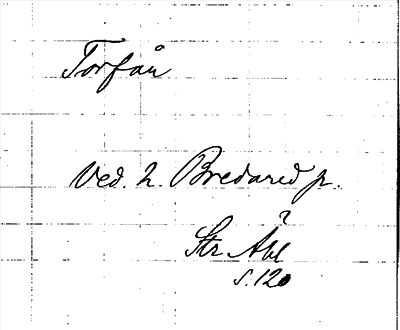 Torfån
Ved. h. Bredared p.
?
Str Åbl
s. 120